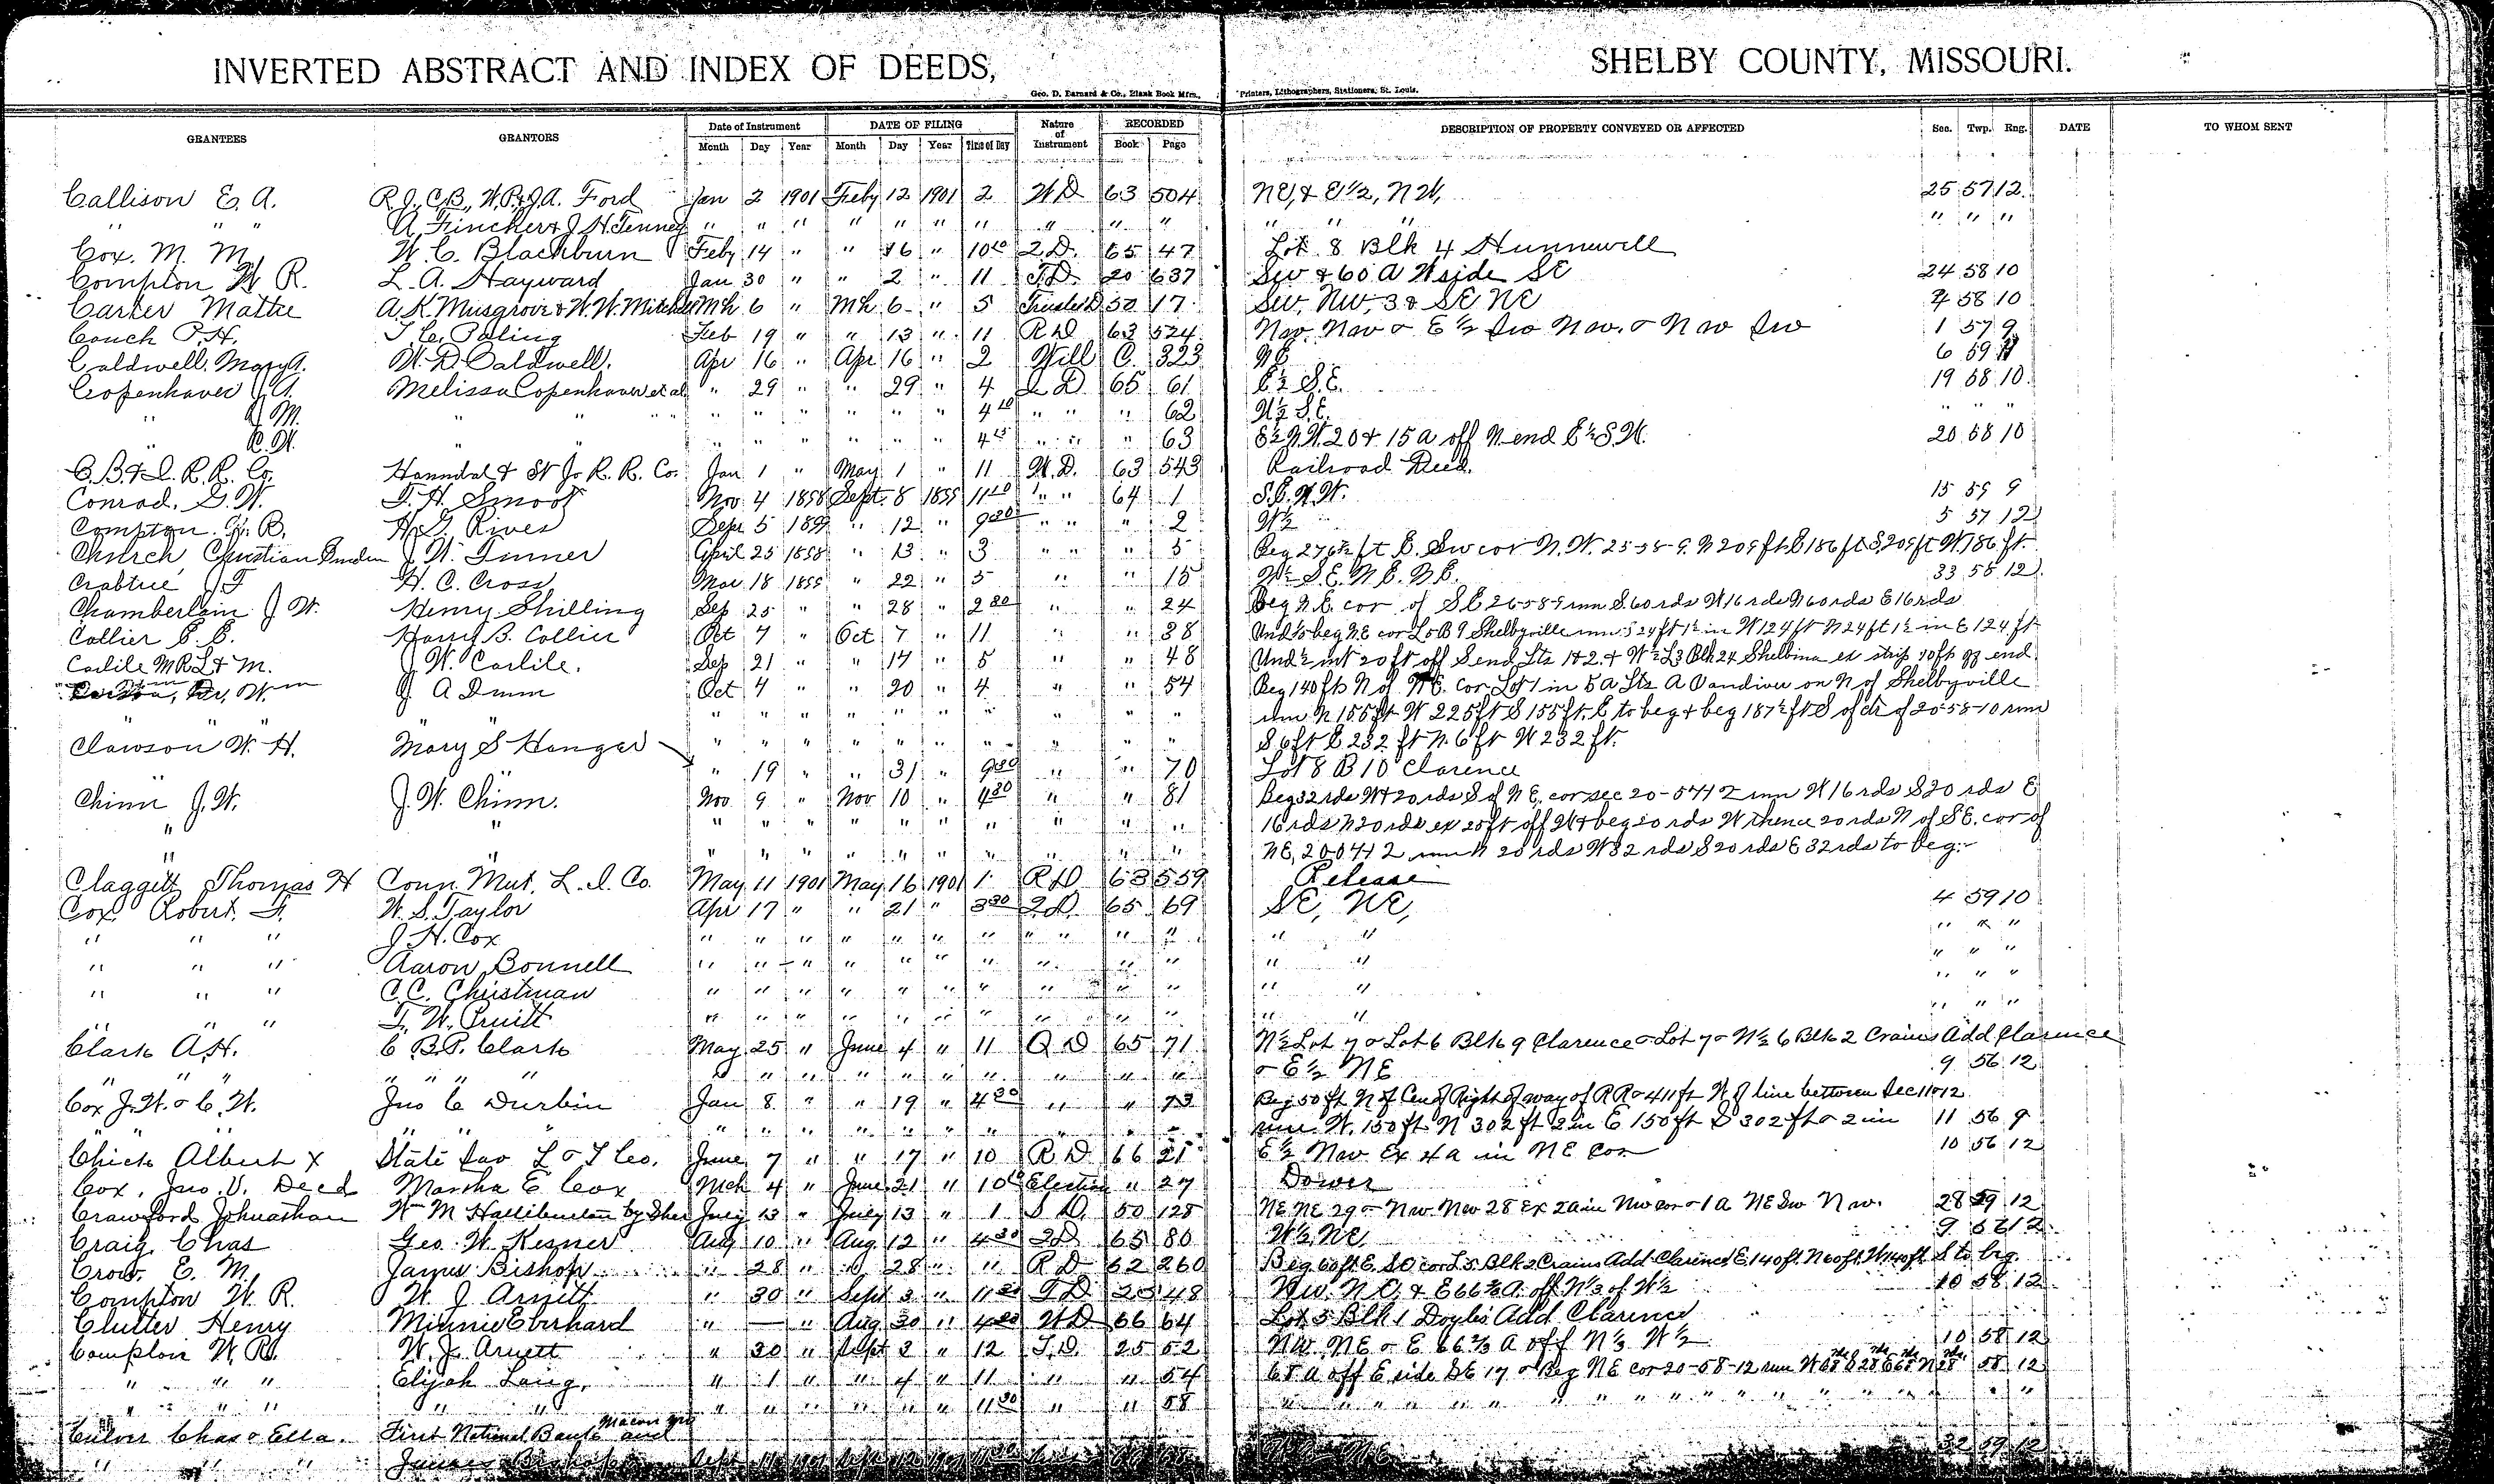 INVERTED ABSTRACT AND INDEX OF DEEDS, SHELBY COUNTY, MISSOURI.
Geo. D. Barnard & Co., Blank Book Mfrs., Printers, Lithographers, Stationers, St. Louis.
GRANTEES GRANTORS Date of Instrument DATE OF FILING Nature of Instrument RECORDED DESCRIPTION OF PROPERTY CONVEYED OR AFFECTED Sec. Twp. Rng. DATE TO WHOM SENT
Month Day Year Month Day Year Time of Day Book Page
Callison E. A. R. J., C.B., W.P. & J.A. Ford Jan 2 1901 Feby 12 1901 2 W D 63 504 NE, & E 1/2, N W, 25 57 12
" " " A. Fincher & J. H. Tenney " " " " " " " " " " " " " " " "
Cox. M. M. W. C. Blackburn Feby 14 " " 16 " 10 2.D. 65 47 Lot 8 Blk 4 Hunnewell
Compton W R. L. A. Hayward Jan 30 " " 2 " 11 T.D. 20 637 SW & 60 A W side SE 24 58 10
Carter Mattie A. K. Musgrove & W. W. Mitchell Mh 6 " Mh 6 " 5 Trustee D 50 17 SW, NW, 3 & SE NE 4 58 10
Couch P. H. T. C. Poling Feb 19 " " 13 " 11 R D 63 524 Nw. Nw & E 1/2 Sw Nw. & Nw Sw 1 57 9
Caldwell, Mary A. W. D. Caldwell. Apr 16 " Apr 16 " 2 Will C. 323 NE 6 59 11
Copenhaver J. A. Melissa Copenhaver et al " 29 " " 29 " 4 D 65 61 E 1/2 S.E. 19 58 10
" J. M. " " " " " " " " 4 10 " " " 62 W 1/2 S.E. " " "
" C. W. " " " " " " " " 4 15 " " " 63 E 1/2 N.W. 20 & 15 a off N. end E 1/2 S.W. 20 58 10
C. B. & Q. R. R. Co. Hannibal & St Jo R. R. Co. Jan 1 " May 1 " 11 W. D. 63 543 Railroad Deed.
Conrad, G. W. T. H. Smoot Nov 4 1898 Sept. 8 1899 11 " " 64 1 S.E. N.W. 15 59 9
Compton W. B. H. G. Rives Sept 5 1899 " 12 " 9 30 " " " 2 W 1/2 5 57 12
Church, Christian J. W. Tinner April 25 1898 " 13 " 3 " " " 5 Beg 276 1/2 ft E. Sw cor N. W. 25-58-9 N 209 ft E 186 ft S 209 ft W. 186 ft.
Crabtree J F H. C. Cross Mar 18 1899 " 22 " 5 " " 15 W 1/2 S.E. N.E. N.E. 33 58 12
Chamberlain J W. Henry Shilling Sep 25 " " 28 " 2 30 " " 24 Beg N.E. cor of SE 26-58-9 run S. 60 rds W 16 rds N 60 rds E 16 rds
Collier E. E. Harry B. Collier Oct 7 " Oct 7 " 11 " " 38 beg N.E cor Lo B 9 Shelbyville run S 24 ft 1 1/2 in W 124 ft N 24 ft 1 1/2 in E 124 ft
Carlile M R L & M. J. W. Carlile. Sep 21 " " 14 " 5 " " 48 Und 1/2 int 20 ft off S end Lts 1 & 2. & W 1/2 L 3 Blk 24 Shelbina ex strip 70 ft end
Wm J A Dimm Oct 4 " " 20 " 4 " " 54 Beg 140 ft N of N.E. Cor Lot 1 in 5 a Lts A Vandiver on N of Shelbyville
" " " " " " " " " " " " " run N 155 ft W 225 ft S 155 ft. E to beg & beg 187 1/2 ft S of of 20-58-10 run
Clawson W. H. Mary S Hanger " " " " " " " " " " S 6 ft E 232 ft N. 6 ft W 232 ft.
" 19 " " 31 " 9 30 " " 70 Lot 8 B 10 Clarence
Chinn J. W. J. W. Chinn. Nov 9 " Nov 10 " 4 30 " " 81 Beg 32 rds W & 20 rds S of N E, cor sec 20-57-12 run W 16 rds S 20 rds E
" " " " " " " " " " " " 16 rds N 20 rds ex 25 ft off W & beg 20 rds W thence 20 rds N of S.E. cor of
" " " " " " " " " " " " NE, run N 20 rds W 32 rds S 20 rds E 32 rds to beg.
Claggett Thomas H Conn. Mut. L. I. Co. May 11 1901 May 16 1901 1 R D 63 559 Release
Cox Robert. F. W. S. Taylor Apr 17 " " 21 " 3 30 2.D. 65 69 SE, NE, 4 59 10
" " " J. H. Cox " " " " " " " " " " " " " " " "
" " " Aaron Bonnell " " " " " " " " " " " " " "
" " " C. C. Christman " " " " " " " " " " " " " "
" " " T. W. Pruitt " " " " " " " " " " " " " "
Clark A. H. C B. P. Clark May 25 " June 4 " 11 Q D 65 71 N 1/2 Lot 7 & Lot 6 Blk 9 Clarence & Lot 7 & N 1/2 6 Blk 2 Crains Add Clarence
" " " " " " " " " " " " " " " " " & E 1/2 NE 9 56 12
Cox J. W. & C. W. Jno C Durbin Jan 8 " " 19 " 4 30 " " 73 Beg 50 ft N of Cen of Right of way of RR & 411 ft W of line between Sec 11 & 12
" " " " " " " " " " " " " " run W. 150 ft N 302 ft 2 in E 150 ft S 302 ft & 2 in 11 56 9
Chick Albert X State Sav L & T Co. June 7 " " 17 " 10 R D 66 21 E 1/2 Nw Ex 4 a in NE Cor 10 56 12
Cox, Jno. V. Decd Martha E Cox Mch 4 " June 21 " 10 Election " 27 Dower
Crawford Johnathan Wm M Halliburton by Sher July 13 " July 13 " 1 S D. 50 128 NE NE 29 & Nw Nw 28 Ex 2a in Nw cor & 1 a NE Sw Nw. 28 59 12
Craig Chas Geo. W. Kesner Aug 10 " Aug. 12 " 4 30 2D 65 80 W 1/2 NE, 9 56 12
Crow. E. M. James Bishop " 28 " " 28 " " R D 62 260 Beg 60 ft E. SE cor L 5 Blk 2 Crains Add Clarence E. 140 ft. N 60 ft. W. 140 ft S to beg.
Compton W. R. W. J. Arnett " 30 " Sept 3 " 11 30 T D 25 48 N.W. N.E. & E 66 2/3 A. off N 1/3 of W 1/2 10 58 12
Clutter Henry Minnie Eberhard " — " Aug 30 " 4 20 W D 66 64 Lot 5 Blk 1 Doyles Add Clarence
Compton W. R. W. J. Arnett " 30 " Sept 3 " 12 T.D. 25 52 NW. NE & E 66 2/3 A off N 1/3 W 1/2 10 58 12
" " " Elijah Laing. " 1 " " 4 " 11 " " 54 68 A off E side SE 17 & Beg NE cor 20-58-12 run W 68 rds S 28 rds E 68 rds N 28 rds 58 12
" " " " " " " " " " " 11 30 " " 58 " " " " " " " " " "
Culver Chas & Ella. First National Bank Macon Mo and
" " " James Bishop Sept 1901 Sept 12 1901 NE 32 59 12